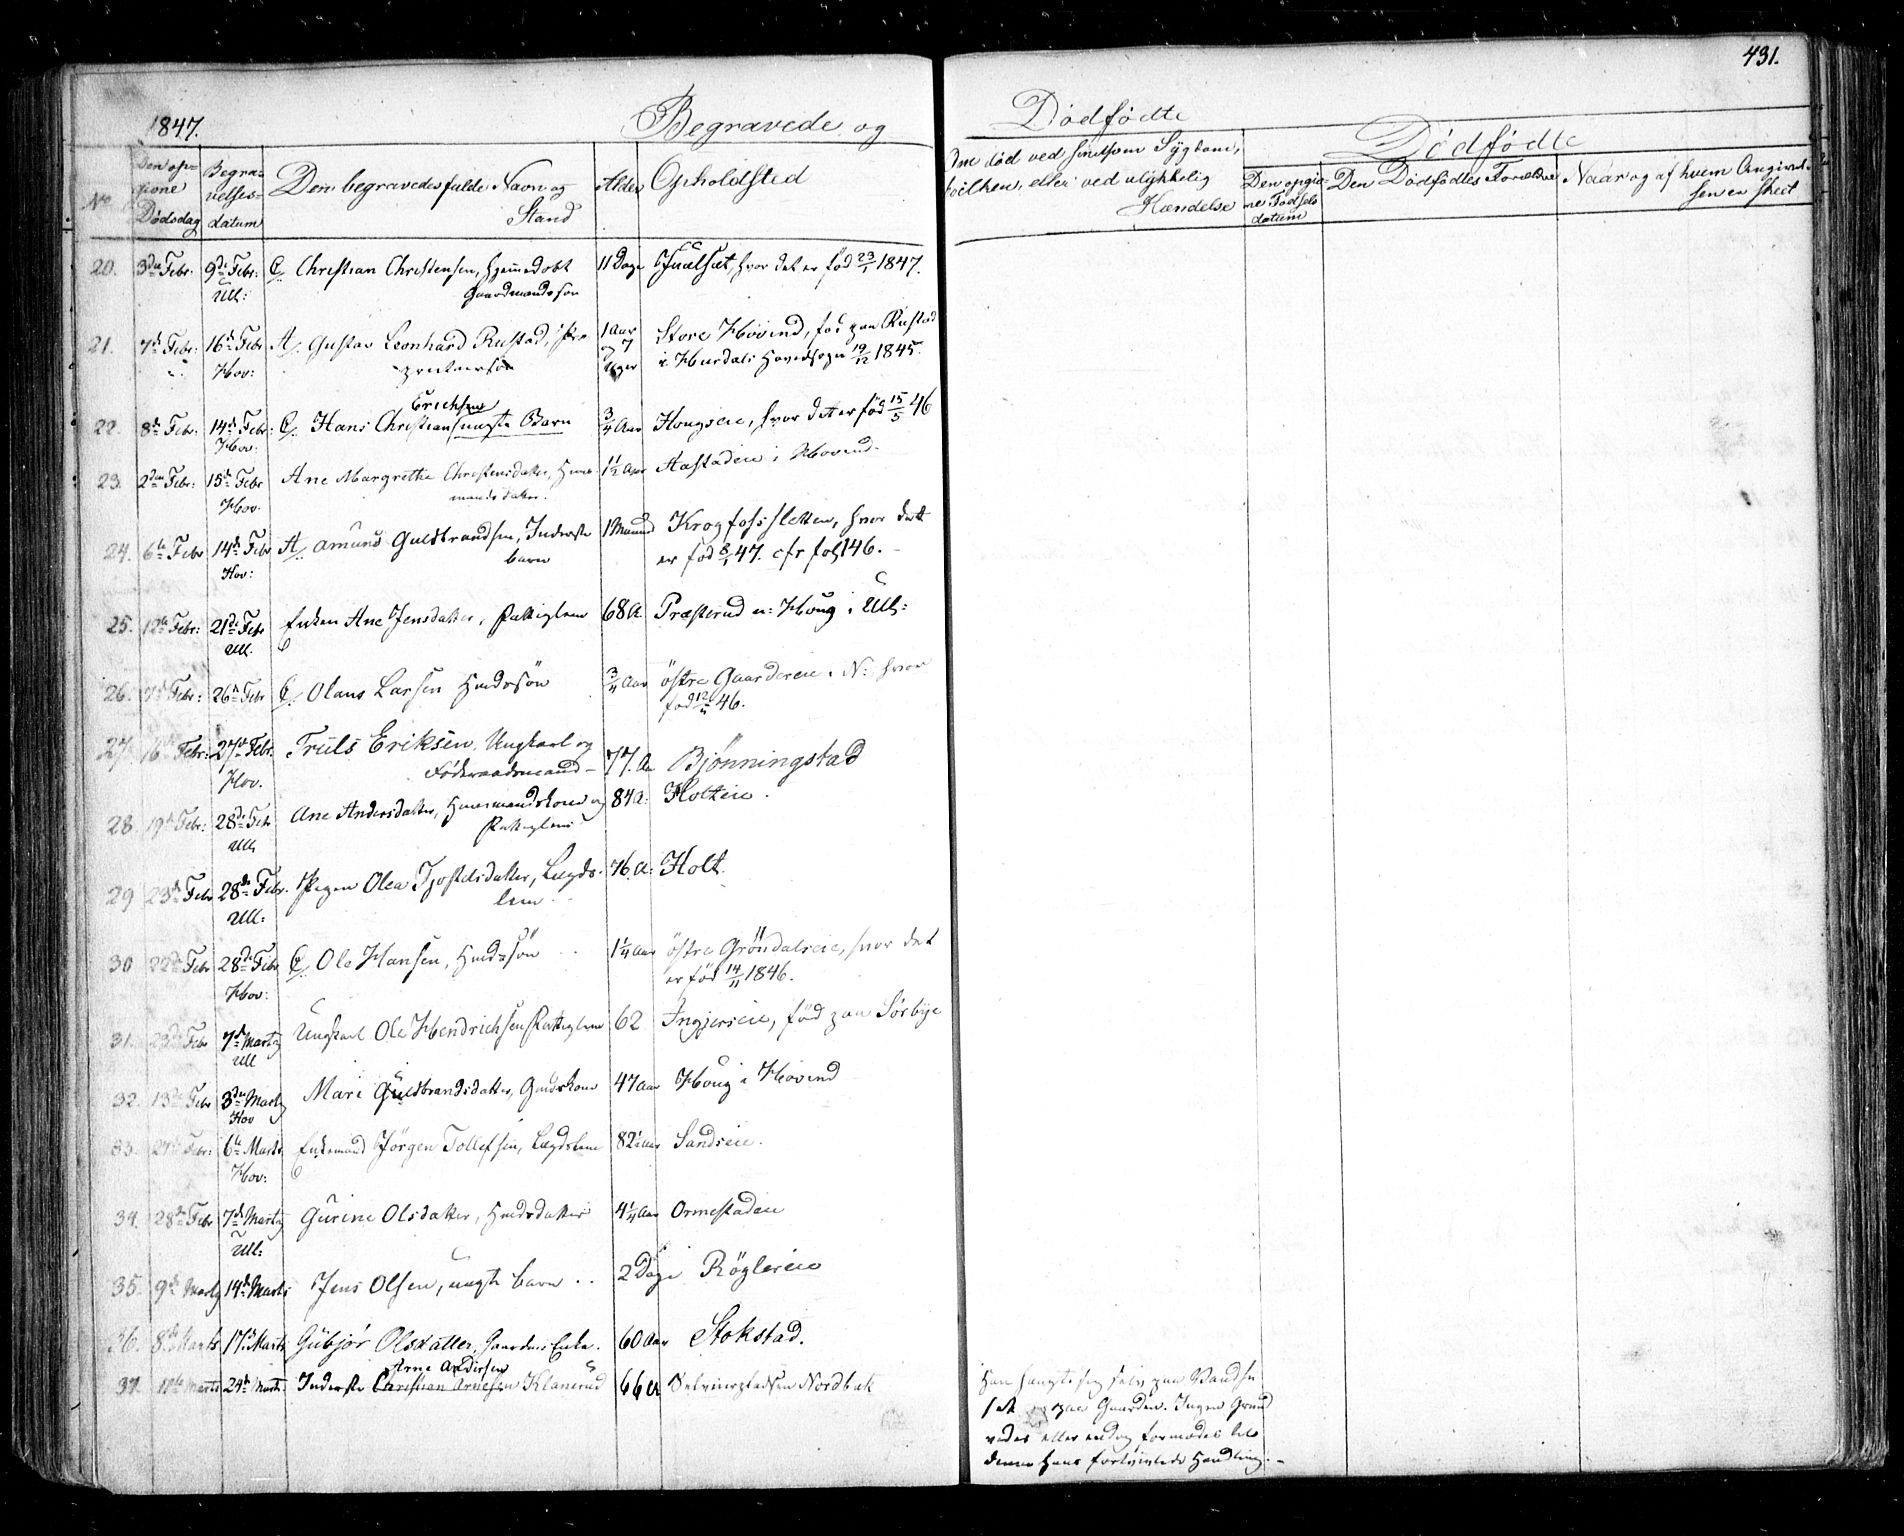 431.
1847. Begravede og Dødfødte
No
Den opgivne Dødsdag
Begravelsesdatum
Den begravedes fulde Navn og Stand
Alder
Opholdsted
Om død ved smitsom Sygdom, hvilken, eller ved ulykkelig Hændelse
Dødfødte
Den opgivne Fødselsdatum
Den Dødfødtes Forældre
Naar og af hvem Angivelsen er skeet
20. 3die Febr: 9de Febr: Ull: C/. Christian Christensen, hjemmedøbt 11 Dage hvor det er fød 23/1 1847.
Gaardmandssøn
21. 7de Febr: 16de Febr Hov: A/. Gustav Leonhard Rustad, 1 Aar og 7 Uger Store Hovind, fød paa Rustad
i Hurdals Hovedsogn 19/12 1845.
22. 8de Febr: 14de Febr: Hov: C/. Hans Christian Erichsen uægte Barn 3/4 Aar Hougseie, hvor det er fød 15/5 46
23. 2den Febr: 15de Febr Hov. Ane Margrethe Christensdatter, Huusmandsdatter. 1 1/2 Aar Aastadeie i Hovind.
24. 6te Febr 14de Febr Hov: A/. Amund Guldbrandsen, Inderste barn 1 Maaned Krogfossletten, hvor det
er fød 8/1 47. cfr fol 146.
25. 12te Febr: 21de Febr Ull. Enken Ane Jensdatter, Fattiglem 68 A. Præsterud u: Houg i Ull:
26. 7de Febr: 26de Febr C/. Olaus Larsen Hmdssøn 3/4 Aar østre Gaardereie i N: hvor
fød 46.
27. 16de Febr: 27de Febr. Hov. Truls Eriksen Ungkarl og
Føderaadsmand 77. A Bjønningstad
28. 19de Febr: 28de Febr Ull Ane Andersdatter, Huusmandskone og
Fattiglem 84 A. Holteie.
29 23de Febr 28de Febr. Ull: Pigen Olea Tjostelsdatter, Lægdslem 76 A: Holt.
30 22de Febr 28de Febr Hov: C/. Ole Hansen, Hmdssøn 1 1/4 Aar østre Grøndalseie, hvor det
er fød 14/11 1846.
31. 23de Febr 7de Marts Ull Ungkarl Ole Hendrichsen Fattiglem 62 Ingjerseie, fød paa Sørbye
32. 13de Febr 3die Marts Hov Mari Guldbrandsdatter, Gmdskone 47 Aar Houg i Hovind
33. 27de Febr: 6te Marts Hov: Enkemand Jørgen Tollefsen, Lægdslem 82 Aar Sandseie.
34. 28de Febr 7de Marts Ull: Gurine Olsdatter, Hmdsdatter 4 1/4 Aar Ormestadeie
35. 9de Marts 14de Marts Jens Olsen, uægte barn 2 Dage Røglereie
36. 8de Marts 17de Marts Gubjør Olsdatter, Gaardms Enke. 60 Aar Stokstad.
Arne Andersen
37. Marts 24de Marts Inderste Christian Arnesen Klanerud 66 A Nordbak
Han hængte sig selv paa
paa Gaarden. Ingen Grund
vides eller endog formodes til
denne hans fortvivlede Handling.